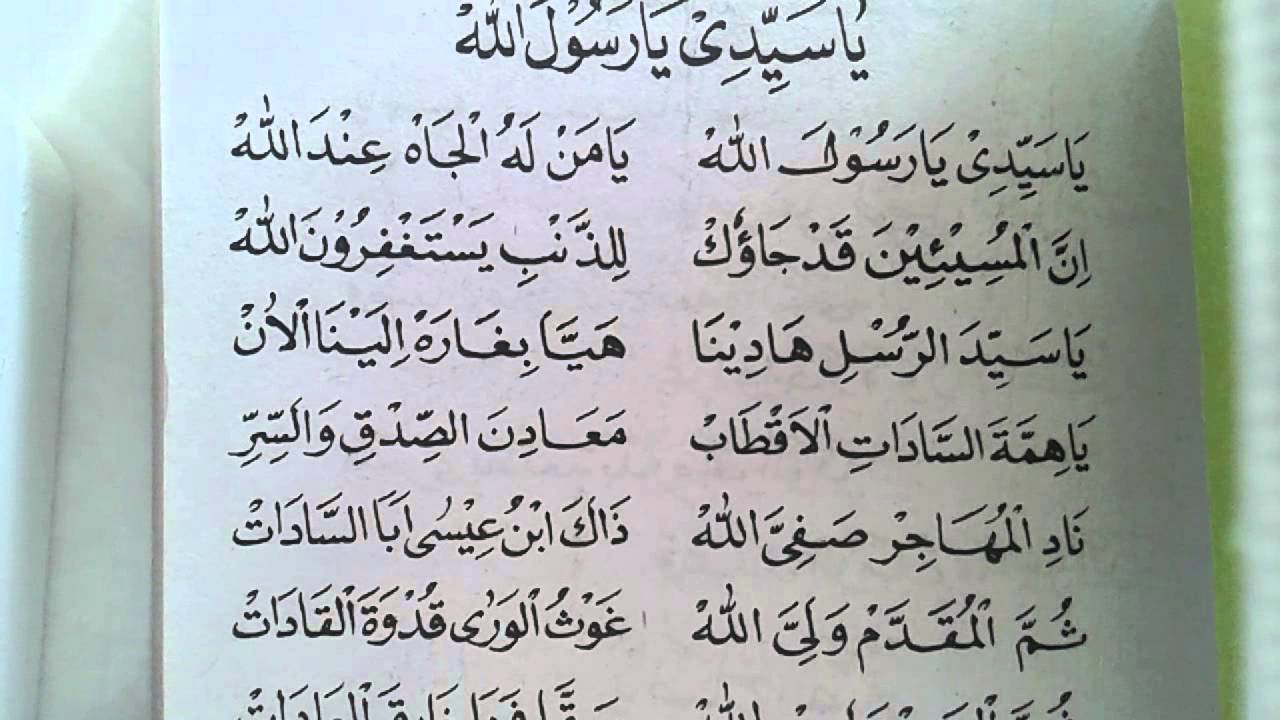 يَا سَيِّدِيْ يَا رَسُوْلَ اللهْ
يَا سَيِّدِيْ يَا رَسُوْلَ اللهْ يَا مَنْ لَهُ الْجَاهْ عِنْدَ اللهْ
اِنَّ الْمُسِيْئِيْنَ قَدْ جَاؤُكْ لِلذَّنْبِ يَسْتَغْفِرُوْنَ اللهْ
يَا سَيِّدَ الرُّسْلِ هَادِيْنَا هَيَّا بِغَارَةْ اِلَيْنَا الْاٰنْ
يَا هِمَّةَ السَّادَاتِ الْاَقْطَابْ مَعَادِنَ الصِّدْقِ وَالسِّرِّ
نَادِ الْمُهَاجِرْ صَفِيَّ اللهْ ذَاكَ ابْنُ عِيْسٰى اَبَا السَّادَاتْ
ثُمَّ الْمُقَدَّمْ وَلِيَّ اللهْ غَوْثُ الْوَرٰى قُدْوَةَ الْقَادَاتْ